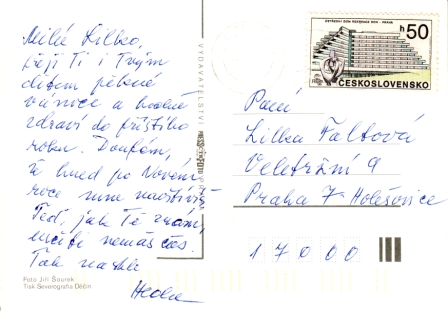 Milá Lilko,
přeji Ti i Tvým
dětem pěkné
vánoce a hodně
zdraví do příštího
roku. Doufám,
že hned po Novém
roce nás navštívíš
Teď, jak Tě znám,
určitě nemáš čas.
Tak na shle
Foto Jiří Šourek
Tisk Severografia Děčín
VYDAVATELSTVÍ
PRESSFOTO
ÚSTŘEDNÍ DŮM REKREACE ROH - PRAHA
h 50
ČESKOSLOVENSKO
Paní
Lilka Faltová
Veletržní 9
Praha 7 Holešovice
17000